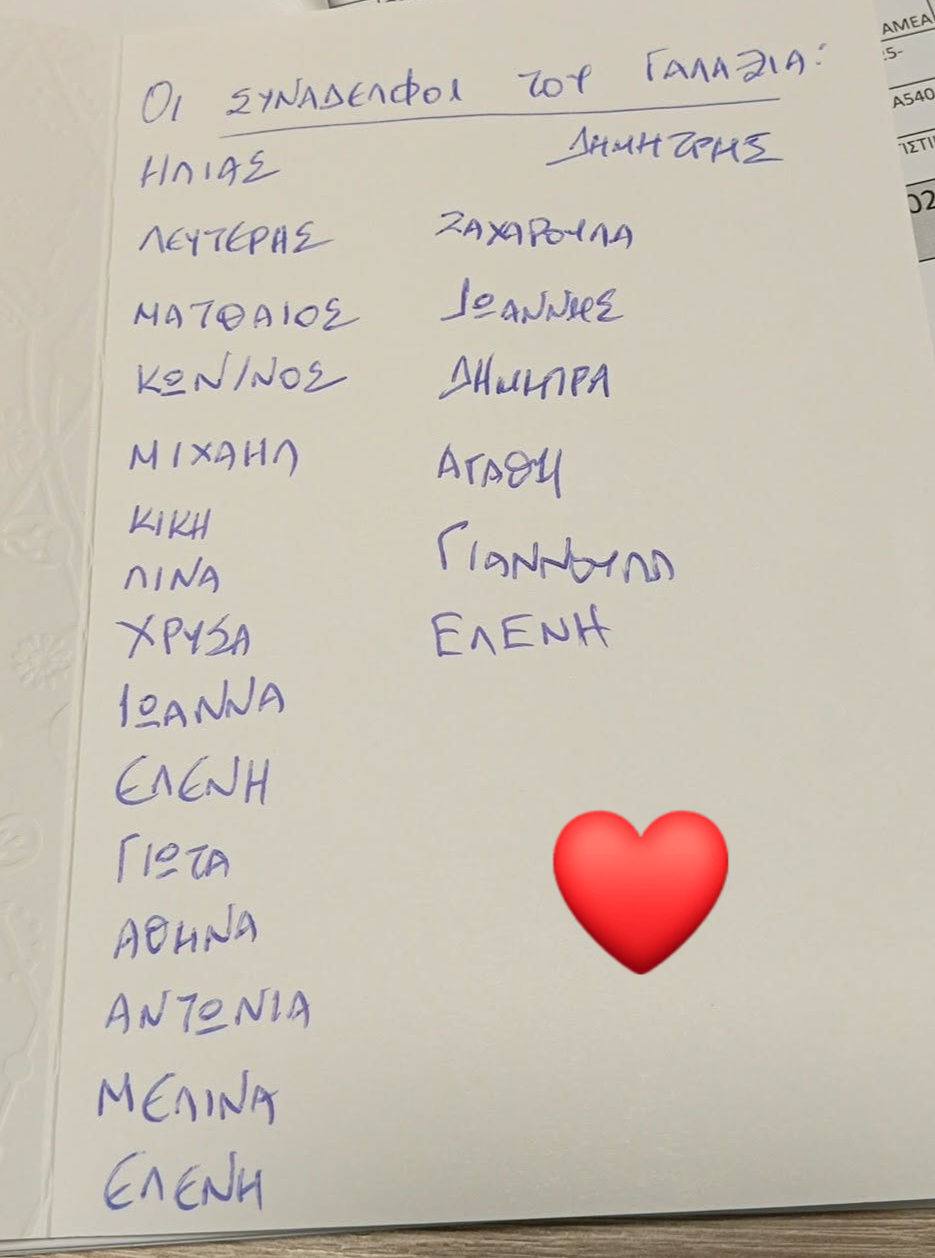 ΟΙ ΣΥΝΑΔΕΛΦΟΙ ΤΟΥ ΓΑΛΑΞΙΑ:
ΗΛΙΑΣ
ΛΕΥΤΕΡΗΣ
ΜΑΤΘΑΙΟΣ
ΚΩΝ/ΝΟΣ
ΜΙΧΑΗΛ
ΚΙΚΗ
ΛΙΝΑ
ΧΡΥΣΑ
ΙΩΑΝΝΑ
ΕΛΕΝΗ
ΓΙΩΤΑ
ΑΘΗΝΑ
ΑΝΤΩΝΙΑ
ΜΕΛΙΝΑ
ΕΛΕΝΗ
ΔΗΜΗΤΡΗΣ
ΖΑΧΑΡΟΥΛΑ
ΙΩΑΝΝΗΣ
ΔΗΜΗΤΡΑ
ΑΓΑΘΗ
ΓΙΑΝΝΟΥΛΑ
ΕΛΕΝΗ
ΑΜΕΑ
5-
Α540